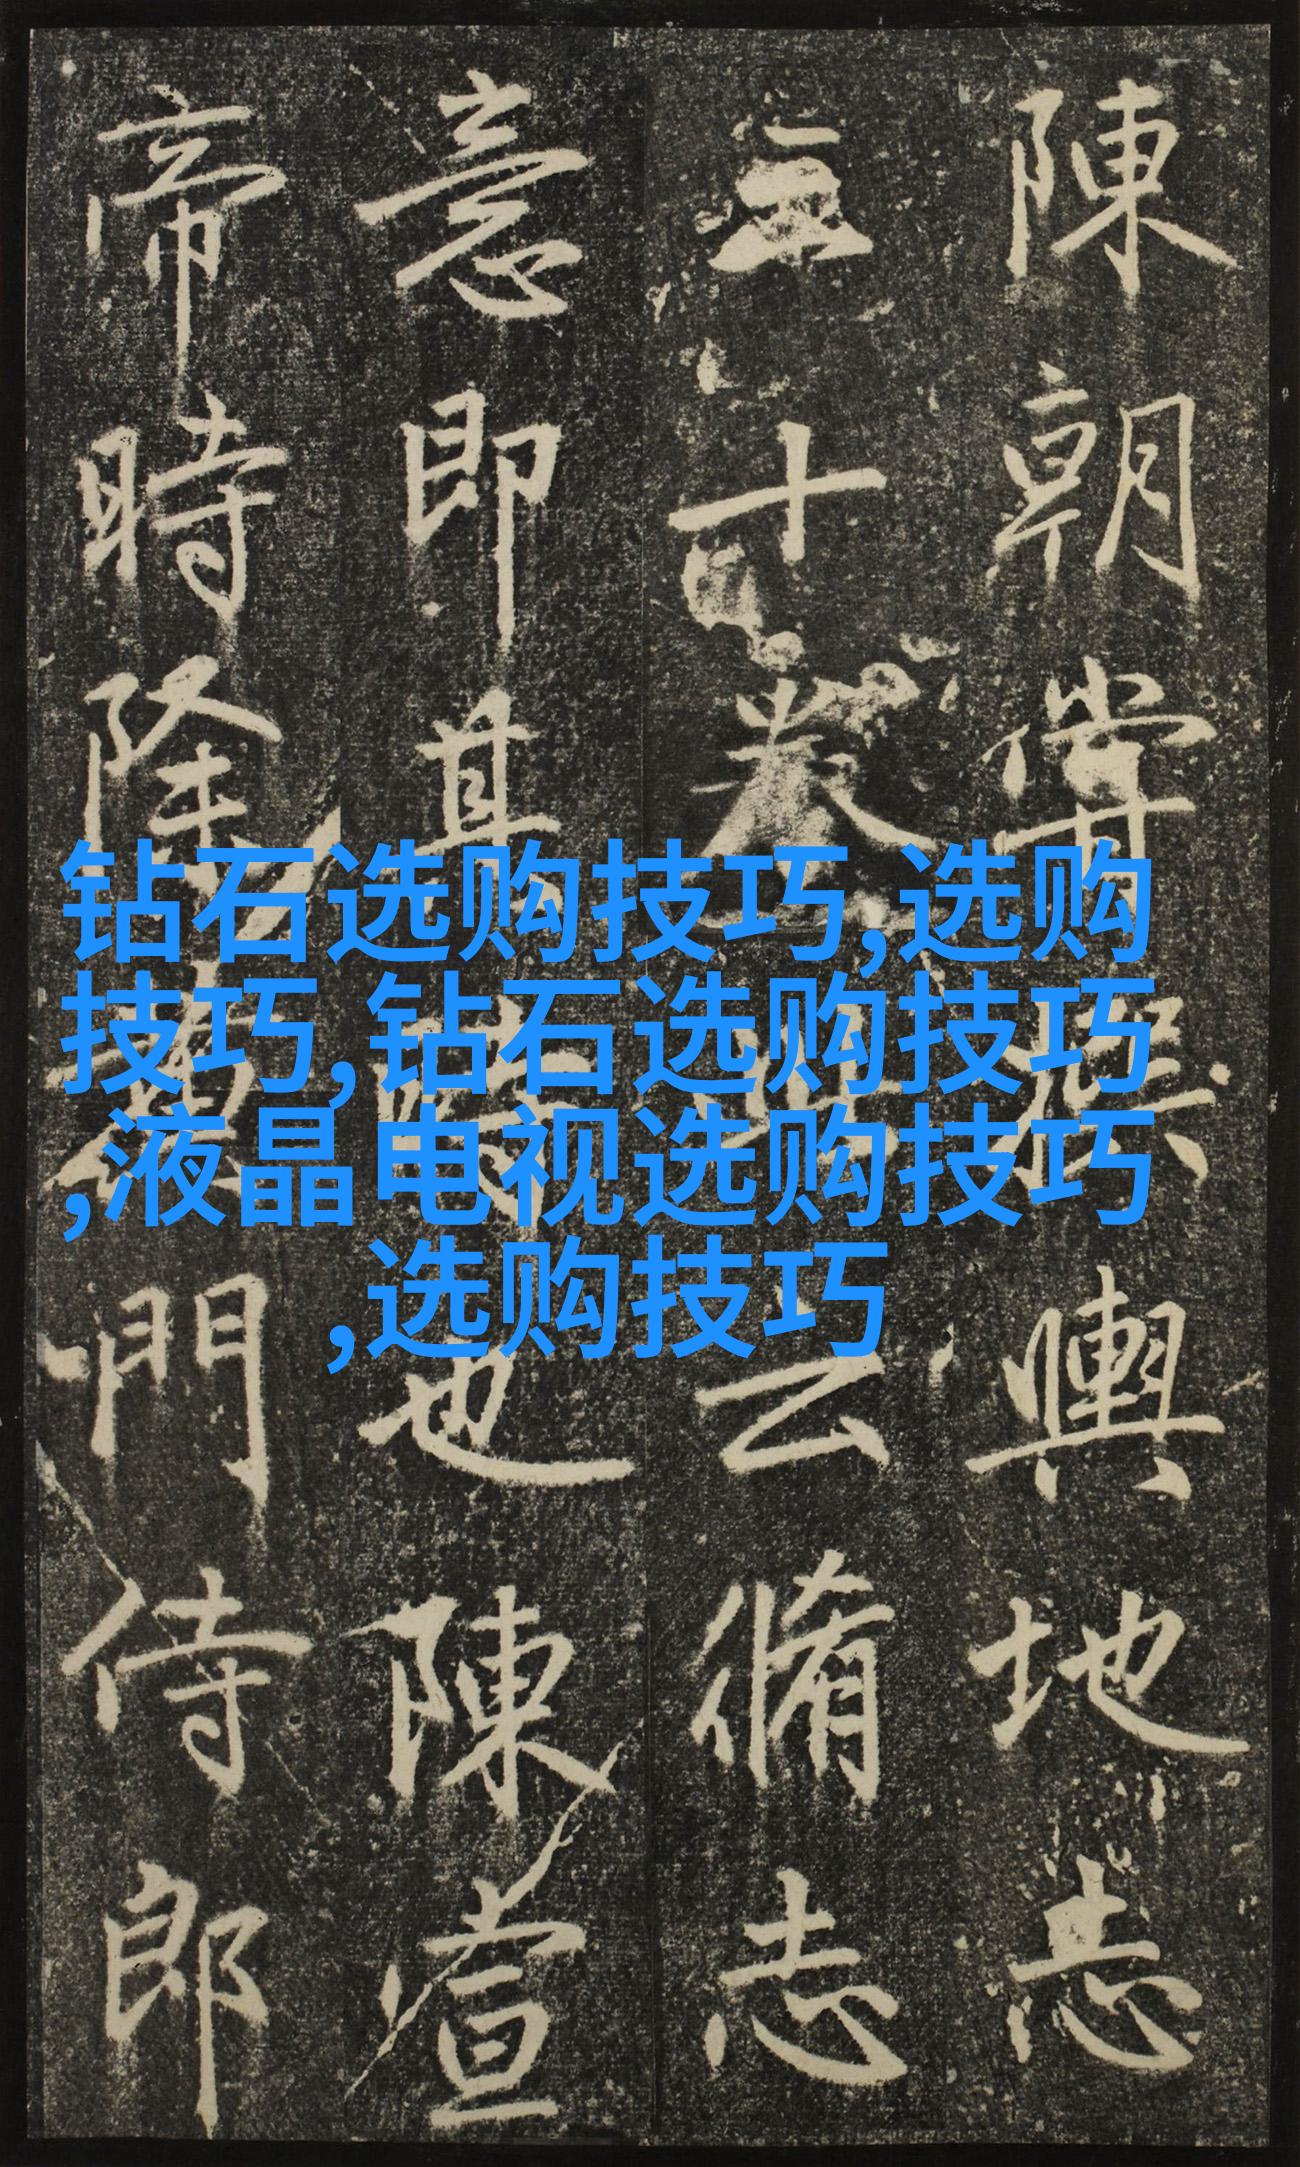 钻石选购技巧,选购
技巧,钻石选购技巧
,液晶电视选购技巧
,选购技巧
陳朝嘗撰輿地志
十卷云脩志
意即其時也陳宣
帝時除黃門侍郎